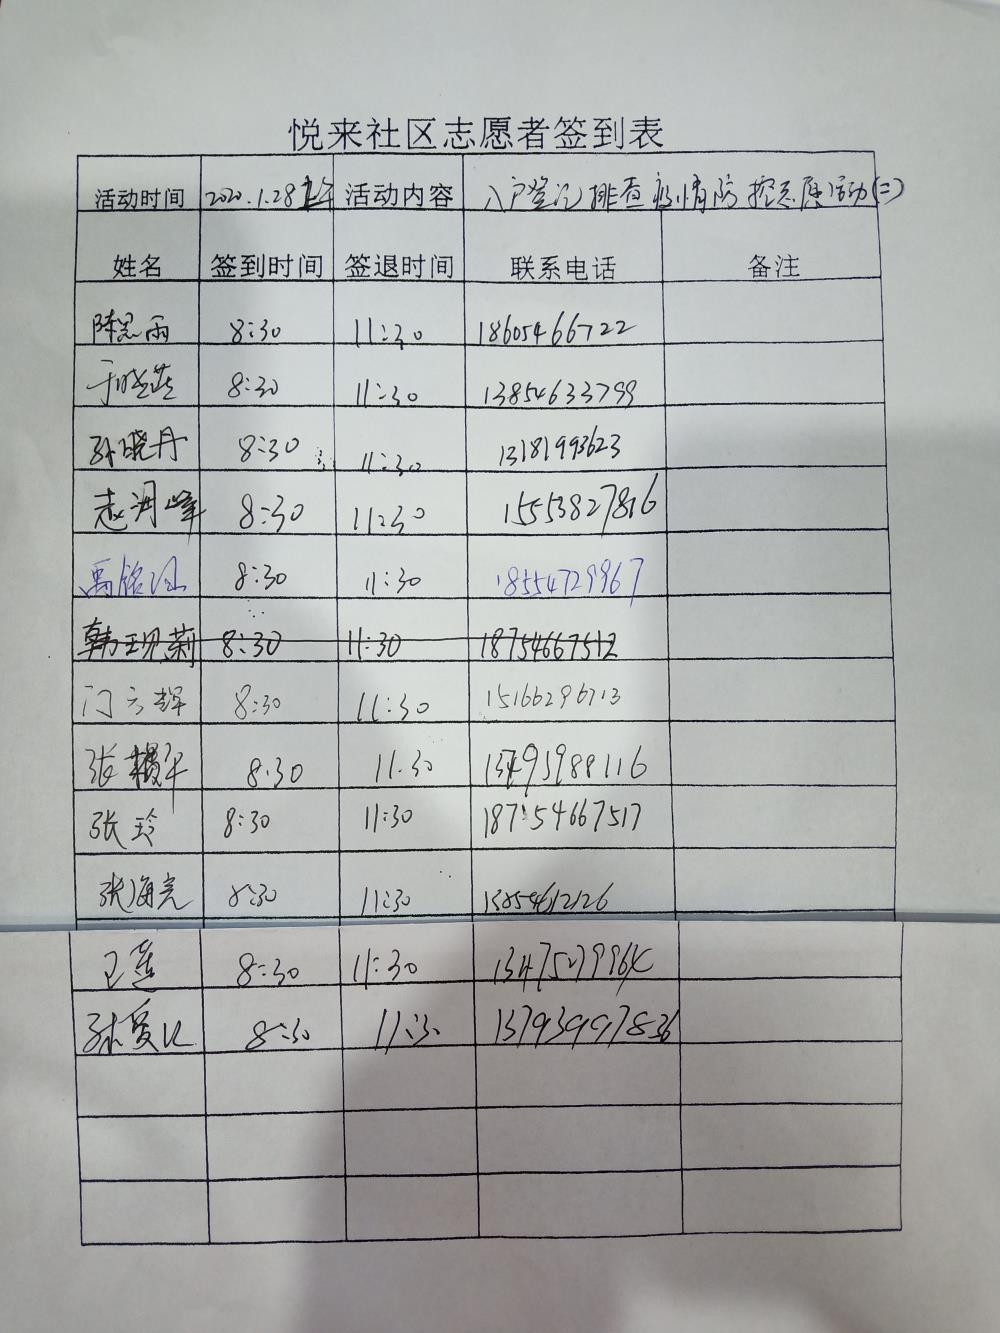 悦来社区志愿者签到表
活动时间 2020.1.28上午 活动内容 入户登记排查疫情防控志愿活动(二)
姓名 签到时间 签退时间 联系电话 备注
陈思雨 8:30 11:30 18605466722
于晓燕 8:30 11:30 13854633799
孙晓丹 8:30 11:30 13181993623
8:30 11:30 15553827816
禹铭 8:30 11:30 18554729967
韩现莉 8:30 11:30 18754667512
门方辉 8:30 11:30 15166296713
张 8:30 11:30
张玲 8:30 11:30 18754667517
张海亮 8:30 11:30 13854612126
王莲 8:30 11:30
孙爱 8:30 11:30